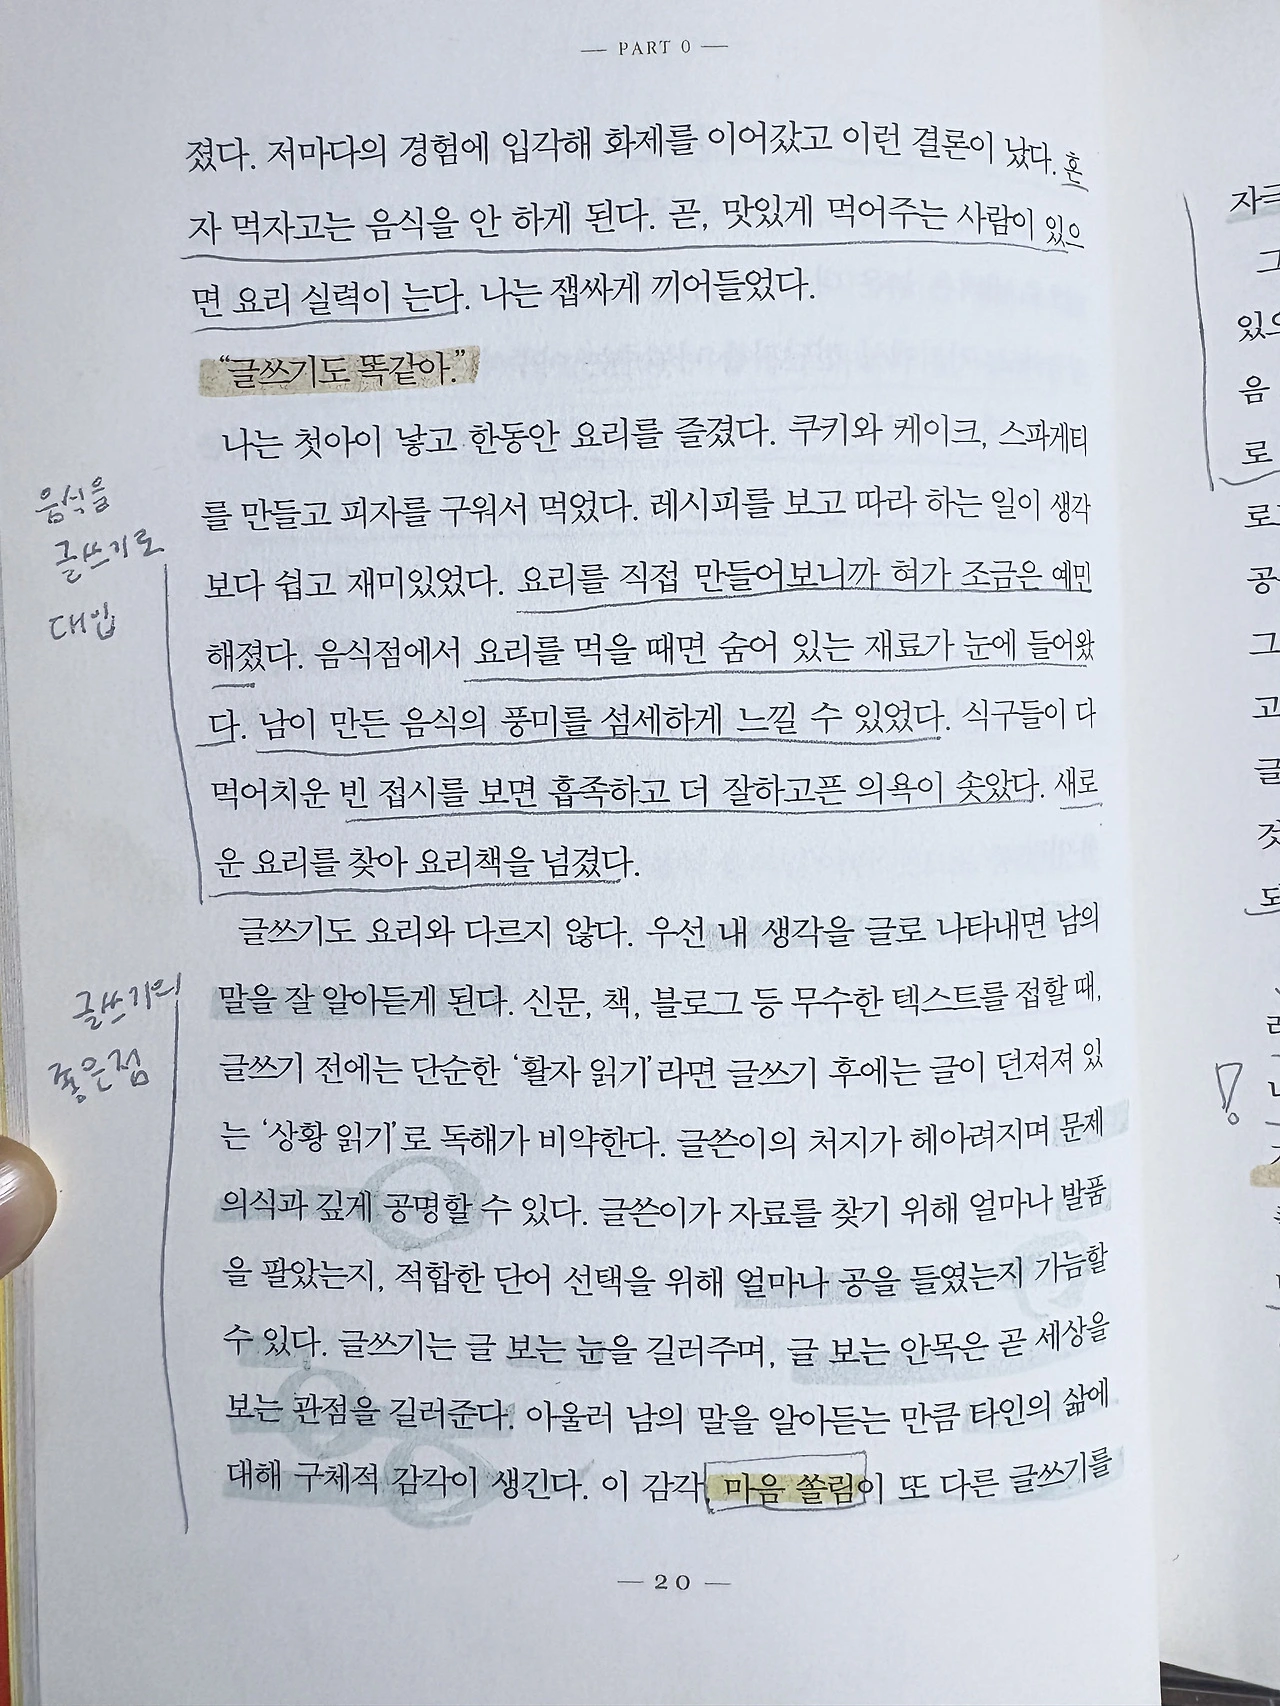 — PART 0 —
졌다. 저마다의 경험에 입각해 화제를 이어갔고 이런 결론이 났다. 혼
자 먹자고는 음식을 안 하게 된다. 곧, 맛있게 먹어주는 사람이 있으
면 요리 실력이 는다. 나는 잽싸게 끼어들었다.
“글쓰기도 똑같아.”
나는 첫아이 낳고 한동안 요리를 즐겼다. 쿠키와 케이크, 스파게티
를 만들고 피자를 구워서 먹었다. 레시피를 보고 따라 하는 일이 생각
보다 쉽고 재미있었다. 요리를 직접 만들어보니까 혀가 조금은 예민
해졌다. 음식점에서 요리를 먹을 때면 숨어 있는 재료가 눈에 들어왔
다. 남이 만든 음식의 풍미를 섬세하게 느낄 수 있었다. 식구들이 다
먹어치운 빈 접시를 보면 흡족하고 더 잘하고픈 의욕이 솟았다. 새로
운 요리를 찾아 요리책을 넘겼다.
음식을
글쓰기로
대입
글쓰기도 요리와 다르지 않다. 우선 내 생각을 글로 나타내면 남의
말을 잘 알아듣게 된다. 신문, 책, 블로그 등 무수한 텍스트를 접할 때,
글쓰기 전에는 단순한 ‘활자 읽기’라면 글쓰기 후에는 글이 던져져 있
는 ‘상황 읽기’로 독해가 비약한다. 글쓴이의 처지가 헤아려지며 문제
의식과 깊게 공명할 수 있다. 글쓴이가 자료를 찾기 위해 얼마나 발품
을 팔았는지, 적합한 단어 선택을 위해 얼마나 공을 들였는지 가늠할
수 있다. 글쓰기는 글 보는 눈을 길러주며, 글 보는 안목은 곧 세상을
보는 관점을 길러준다. 아울러 남의 말을 알아듣는 만큼 타인의 삶에
대해 구체적 감각이 생긴다. 이 감각, 마음 쏠림이 또 다른 글쓰기를
글쓰기의
좋은점
— 20 —
있으
음
로
공
그
고